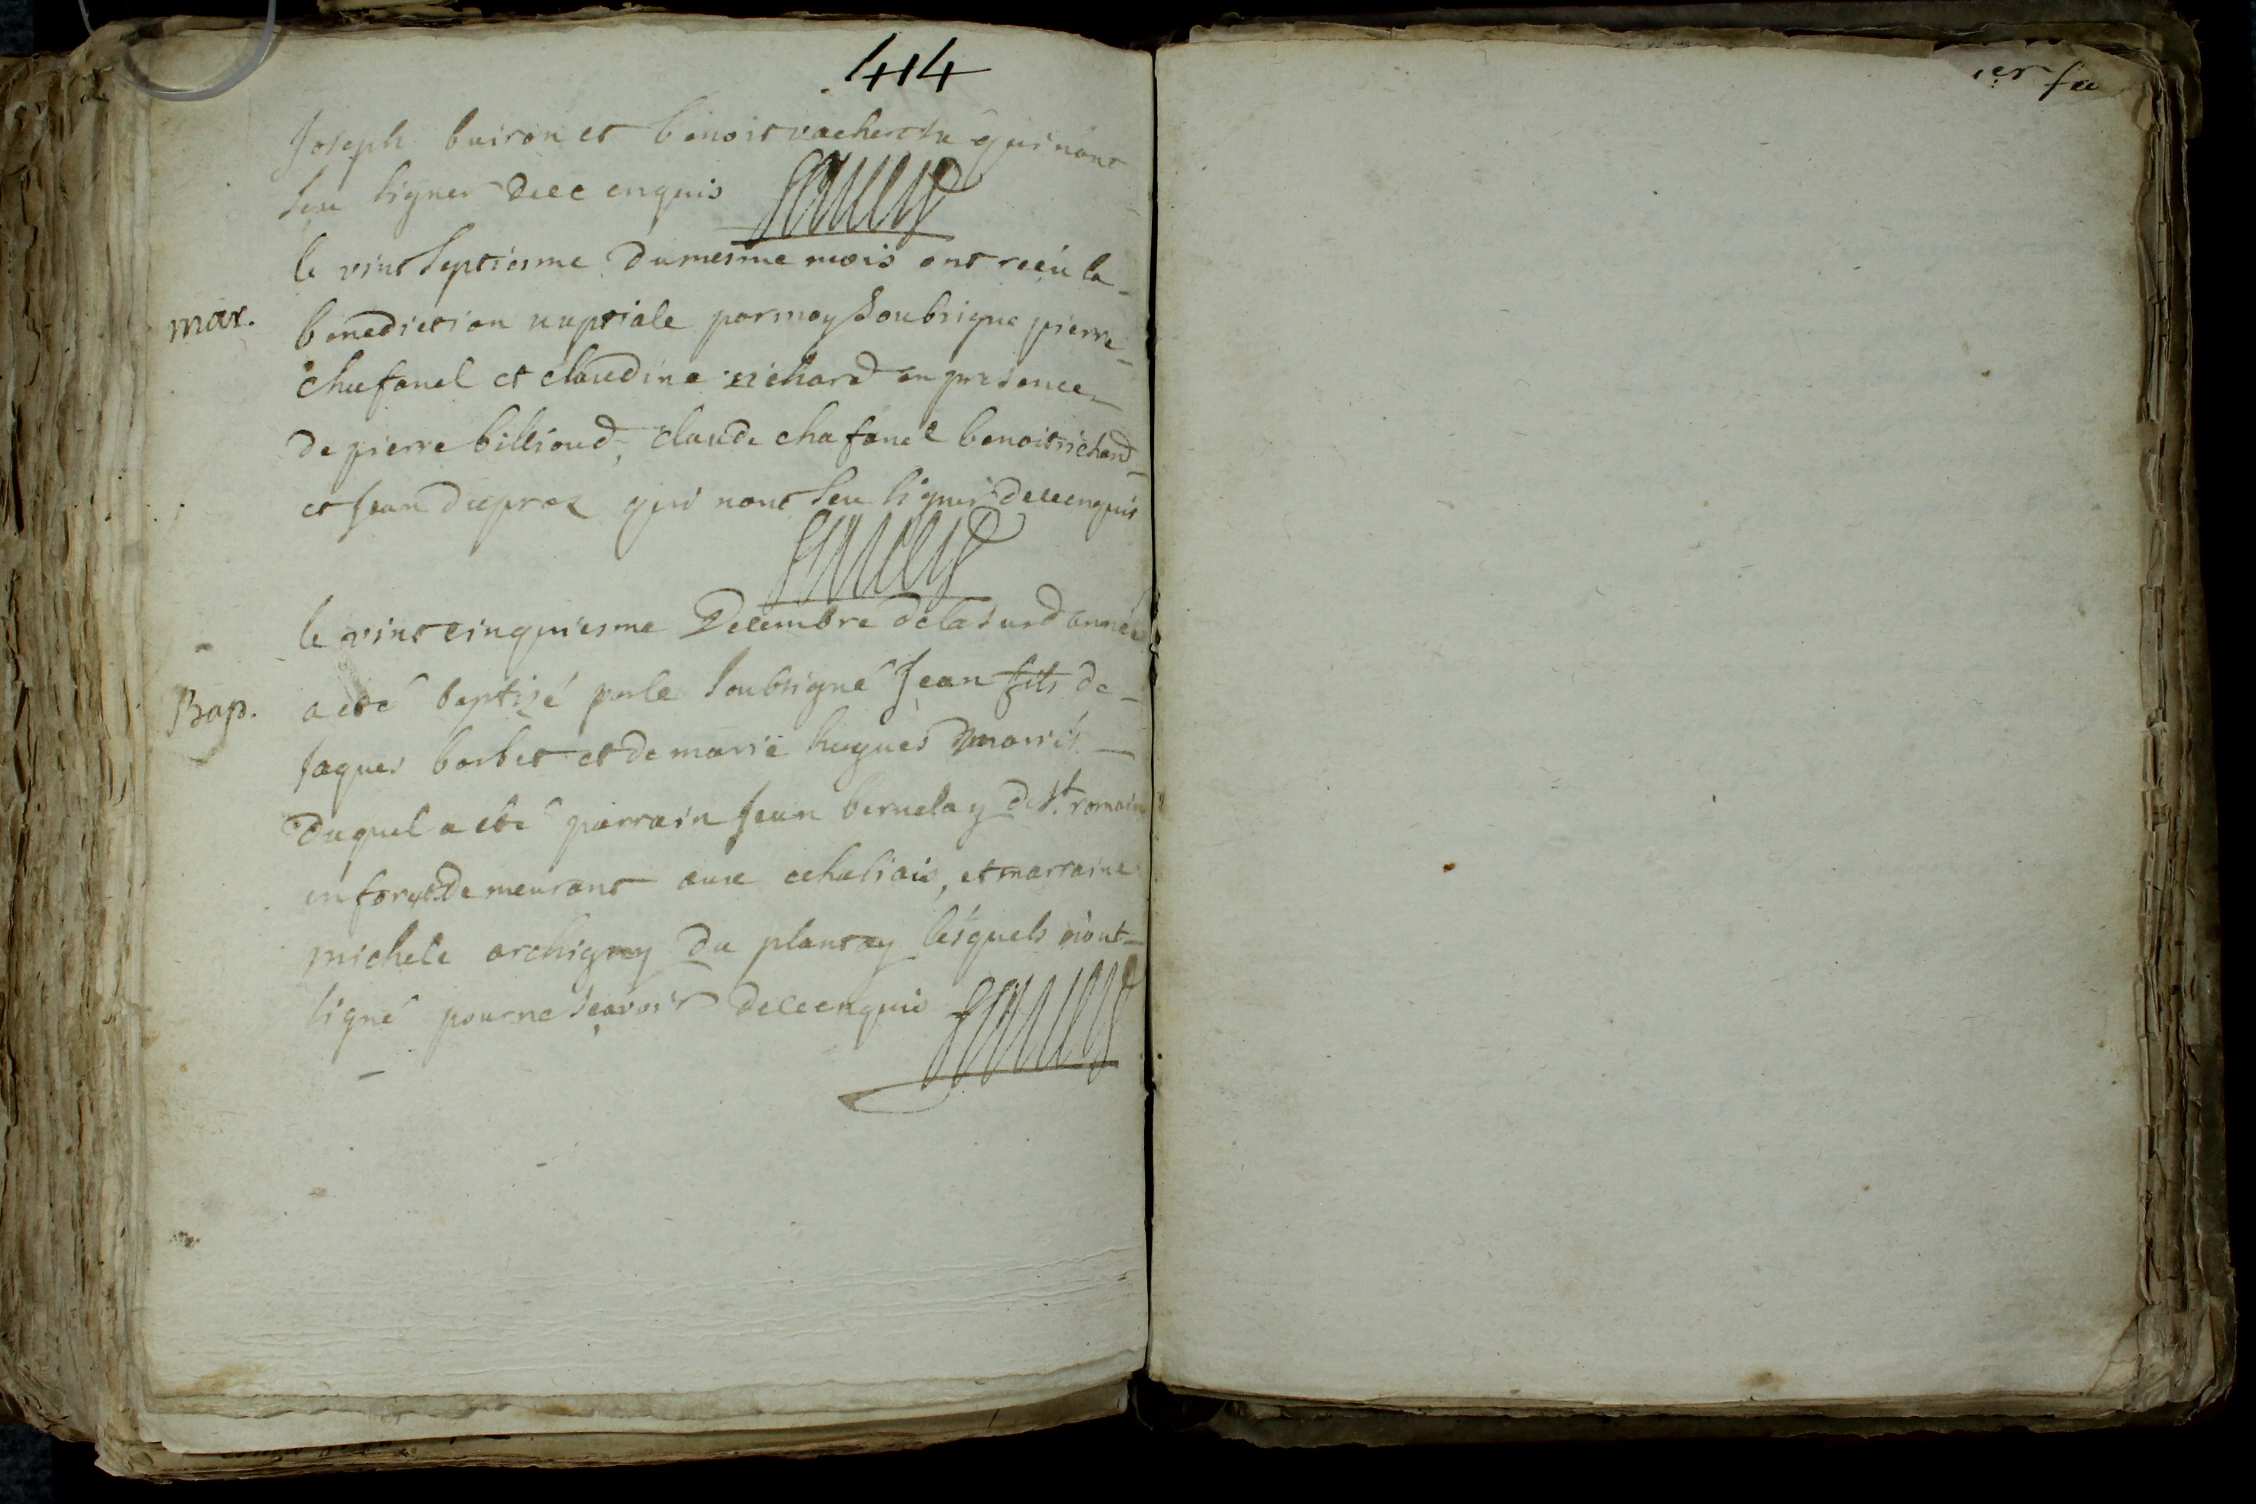 414
Joseph buiron et benoist vacheresse qui nont
sceu signer de ce enquis
le vint septiesme du mesme mois ont receu la
mar.
benediction nuptiale par moy soubsigne pierre
chafanel et claudine richard en presence
de pierre billioud, claude chafanel benoit richard
et Jean duprez qui nont sceu signer de ce enquis
le vint cinquiesme Decembre de la susd année
Bap.
a eté baptizé par le soubsigné Jean fils de
Jaques barbet et de marie hugues mariés
duquel a eté parrain Jean bernelay de St. romain
en forest demeurant aux et marraine
michele archigny du plantey lesquels n'ont
signé pour ne sçavoir de ce enquis